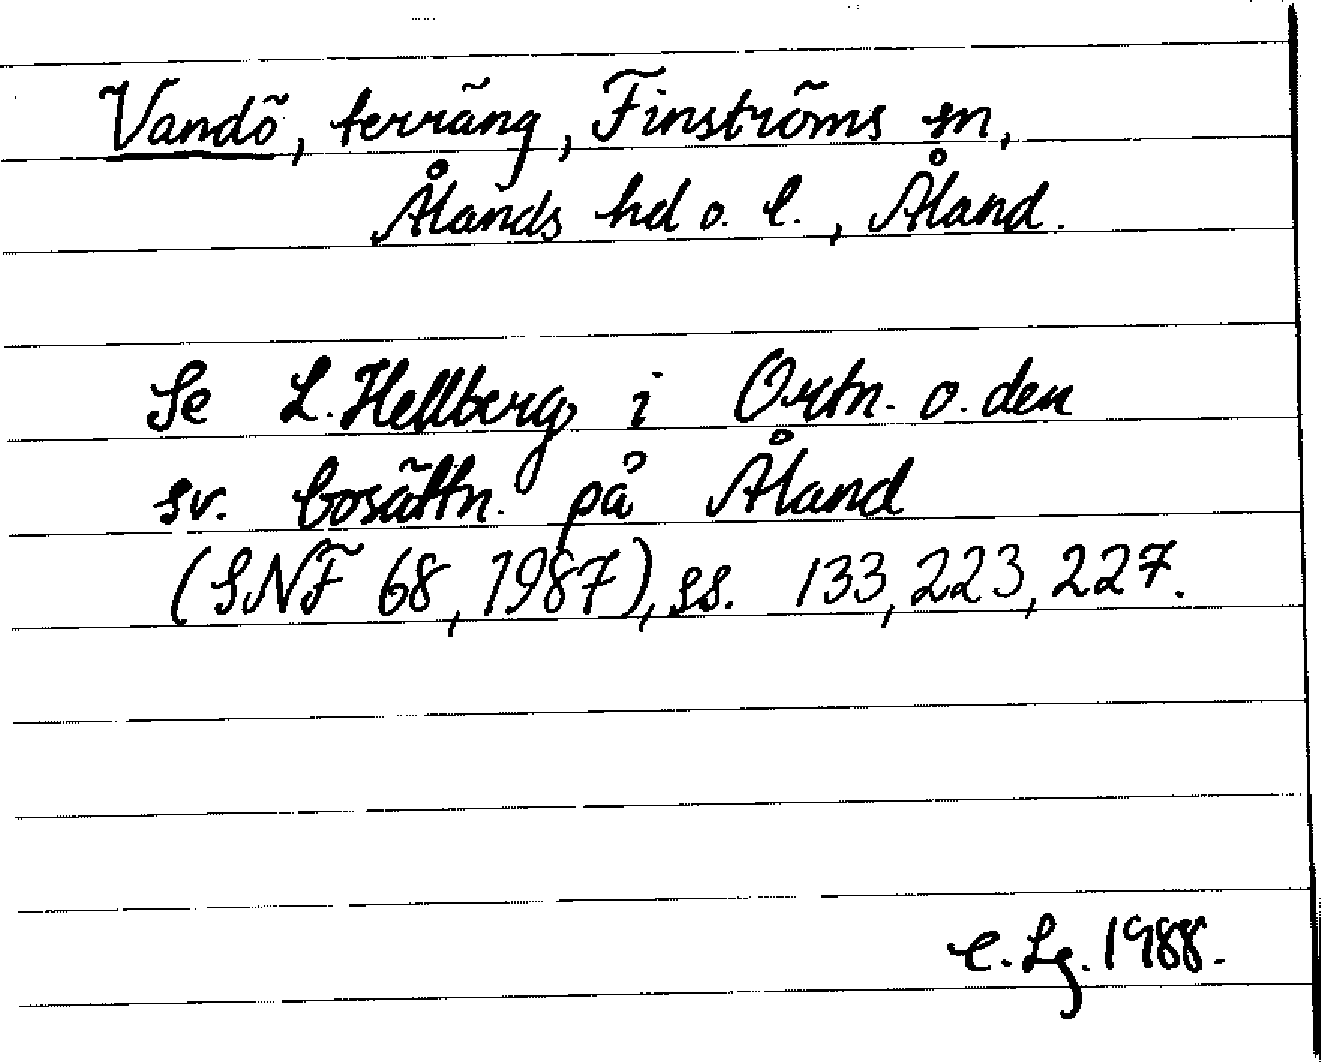 Vandö, terräng, Finströms sn,
Ålands hd o. l., Åland.
Se L. Hellberg i Ortn. o. den
sv. bosättn. på Åland
(SNF 68, 1987), ss. 133, 223, 227.
C. Lg. 1988.